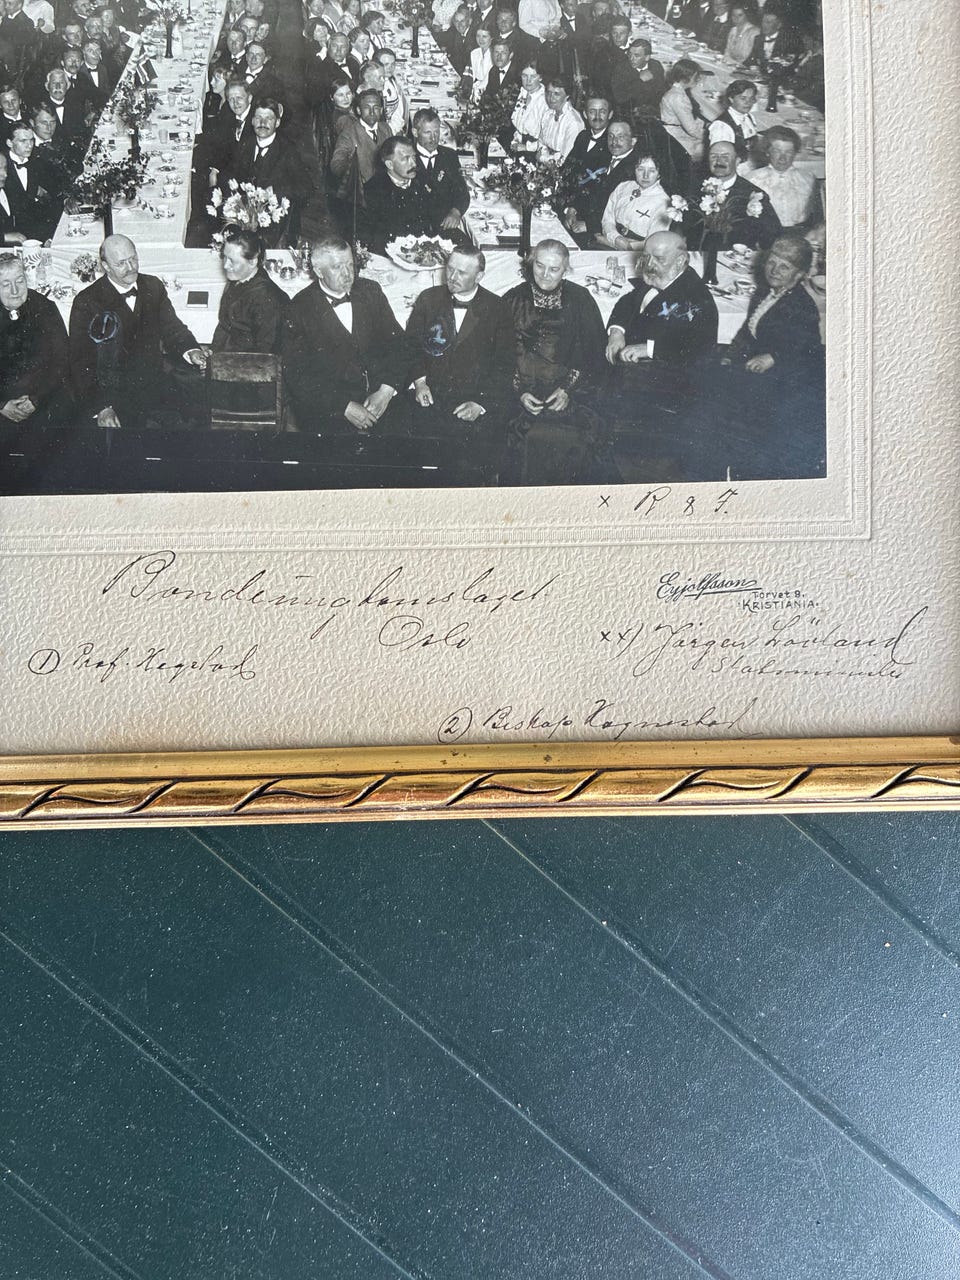 x R & F.
Bondeungdomslaget
Oslo
Eyjolfsson
Torvet 9.
KRISTIANIA.
① Prof. Hegstad
xx) Jörgen Lövland
Statsminister
② Biskop Hognestad
1
2
x
x
xx